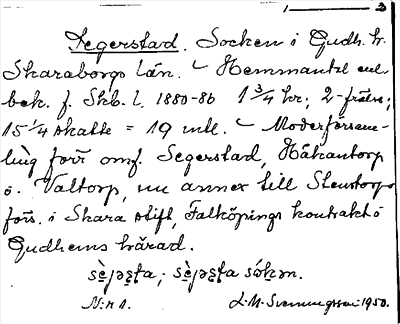 1 — 2
Segerstad. Socken i Gudh. hd.
Skaraborgs län. – Hemmantal enl.
bek. f. Skb. l. 1880-86 1 3/4 kr; 2 frälse;
15 1/4 skatte = 19 mtl. – Moderförsam-
ling förr omf. Segerstad, Håkantorp
o. Valtorp, nu annex till Stenstorps
förs. i Skara stift, Falköpings kontrakt o
Gudhems härad.
sè̱jəsta; sè̱jəsta sókən.
L. M. Svenungsson 1950.